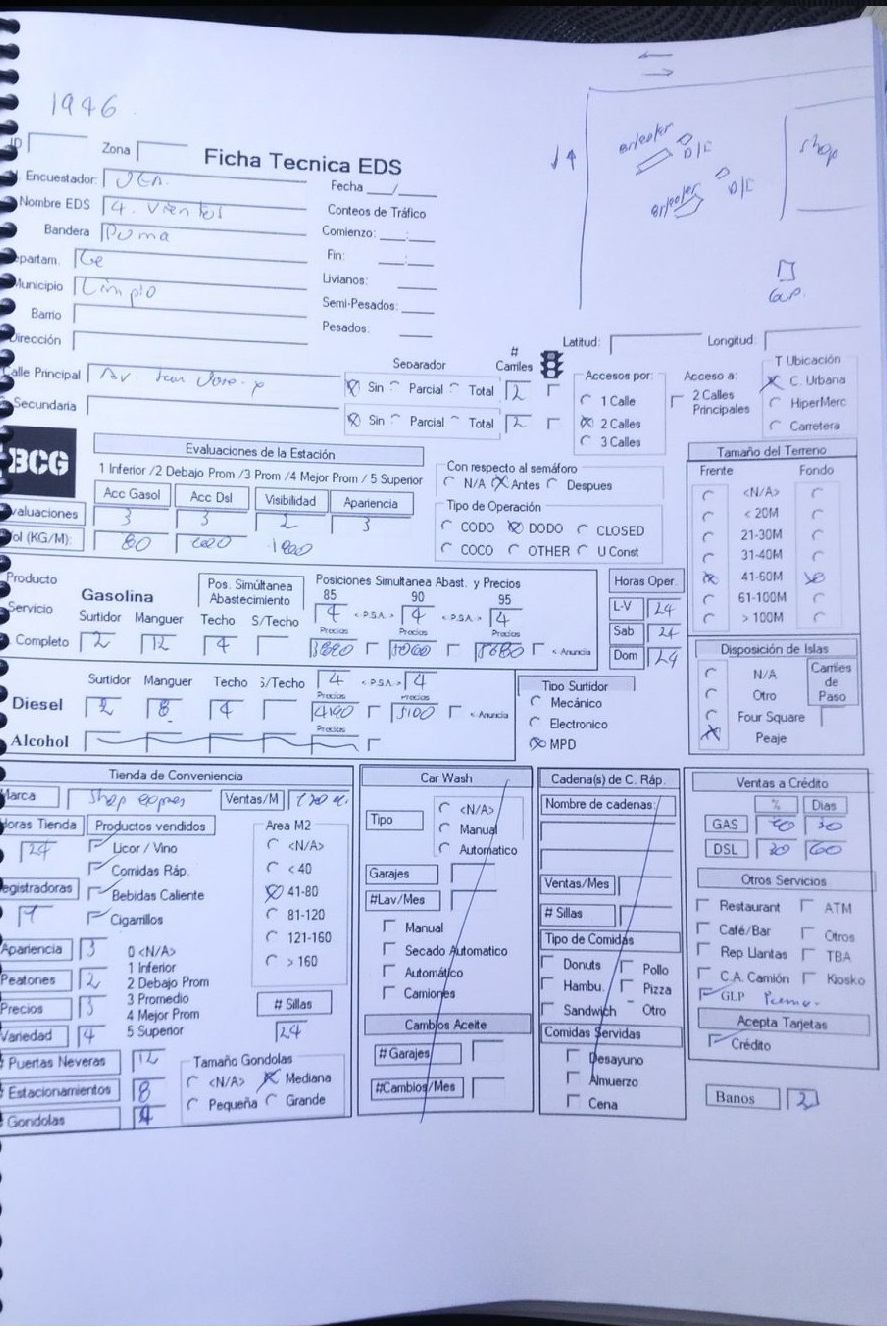 1946
ID Zona
Ficha Tecnica EDS
Encuestador:
Fecha / 
Nombre EDS 4. Vientos
Conteos de Tráfico
Bandera Puma
Comienzo: :
epartam. Ce
Fin: :
Municipio Limpio
Livianos:
Barrio
Semi-Pesados:
Dirección
Pesados:
D/C
D/C
Shop
GLP.
Latitud: Longitud:
Calle Principal Av. San Jose
Separador # Carriles
Sin Parcial Total 2
Secundaria
Sin Parcial Total 2
Accesos por:
1 Calle
2 Calles
3 Calles
Acceso a:
2 Calles
Principales
T Ubicación
C. Urbana
HiperMerc
Carretera
BCG
Evaluaciones de la Estación
1 Inferior /2 Debajo Prom /3 Prom /4 Mejor Prom / 5 Superior
Acc Gasol Acc Dsl Visibilidad Apariencia
valuaciones 3 3 2 3
ol (KG/M): 80
Con respecto al semáforo
N/A Antes Despues
Tipo de Operación
CODO DODO CLOSED
COCO OTHER U Const
Tamaño del Terreno
Frente Fondo
<N/A>
< 20M
21-30M
31-40M
41-60M
61-100M
> 100M
Producto
Servicio
Completo
Gasolina
Pos. Simúltanea
Abastecimiento
Surtidor Manguer Techo S/Techo
2 12 4
Posiciones Simultanea Abast. y Precios
85 90 95
4 < P.S.A. > 4 < P.S.A. > 4
Precios Precios Precios
< Anuncia
Horas Oper.
L-V 24
Sab 24
Dom 24
Disposición de Islas
N/A
Otro
Four Square
Peaje
Carriles
de
Paso
Surtidor Manguer Techo S/Techo 4 < P.S.A. > 4
Diesel 2 8 4
Precios Precios
4190 5100 < Anuncia
Alcohol
Precios
Tipo Surtidor
Mecánico
Electronico
MPD
Tienda de Conveniencia
Marca Shop express Ventas/M
Horas Tienda Productos vendidos
24 Licor / Vino
Comidas Ráp.
egistradoras Bebidas Caliente
Cigarrillos
Area M2
<N/A>
< 40
41-80
81-120
121-160
> 160
Apariencia 3
Peatones 2
Precios 3
Variedad 4
0 <N/A>
1 Inferior
2 Debajo Prom
3 Promedio
4 Mejor Prom
5 Superior
# Sillas
24
# Puertas Neveras 12
Estacionamientos 8
Gondolas 4
Tamaño Gondolas
<N/A> Mediana
Pequeña Grande
Car Wash
Tipo
<N/A>
Manual
Automatico
Garajes
#Lav/Mes
Manual
Secado Automatico
Automático
Camiones
Cambios Aceite
#Garajes
#Cambios/Mes
Cadena(s) de C. Ráp.
Nombre de cadenas:
Ventas/Mes
# Sillas
Tipo de Comidas
Donuts Pollo
Hambu. Pizza
Sandwich Otro
Comidas Servidas
Desayuno
Almuerzo
Cena
Ventas a Crédito
% Dias
GAS 30
DSL 30 60
Otros Servicios
Restaurant ATM
Café/Bar Otros
Rep Llantas TBA
C.A. Camión Kiosko
GLP
Acepta Tarjetas
Crédito
Banos 2